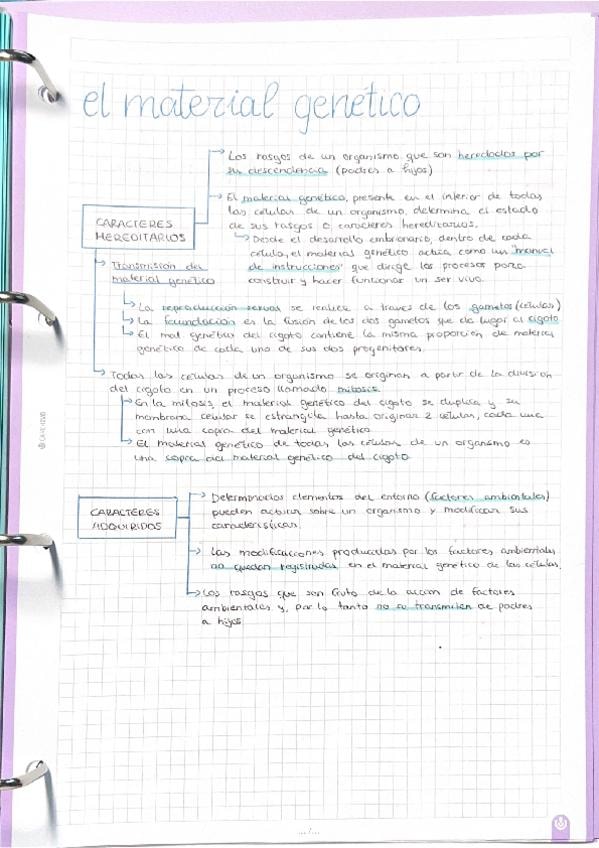 el material genético
Los rasgos de un organismo que son heredados por
su descendencia (padres a hijos)
El material genético, presente en el interior de todas
las células de un organismo, determina el estado
de sus rasgos o caracteres hereditarios.
CARACTERES
HEREDITARIOS
Desde el desarrollo embrionario, dentro de cada
célula, el material genético actúa como un "manual
de instrucciones" que dirige los procesos para
construir y hacer funcionar un ser vivo.
Transmisión del
material genético
La reproducción sexual se realiza a través de los gametos (células)
La fecundación es la fusión de los dos gametos que da lugar al cigoto
El mat genético del cigoto contiene la misma proporción de material
genético de cada uno de sus dos progenitores.
Todas las células de un organismo se originan a partir de la división
del cigoto en un proceso llamado mitosis.
En la mitosis, el material genético del cigoto se duplica y su
membrana celular se estrangula hasta originar 2 células, cada una
con una copia del material genético
El material genético de todas las células de un organismo es
una copia del material genético del cigoto
CARACTERES
ADQUIRIDOS
Determinados elementos del entorno (factores ambientales)
pueden actuar sobre un organismo y modifican sus
características.
Las modificaciones producidas por los factores ambientales
no quedan registradas en el material genético de las células.
Los rasgos que son fruto de la acción de factores
ambientales y, por lo tanto no se transmiten de padres
a hijos
.../...